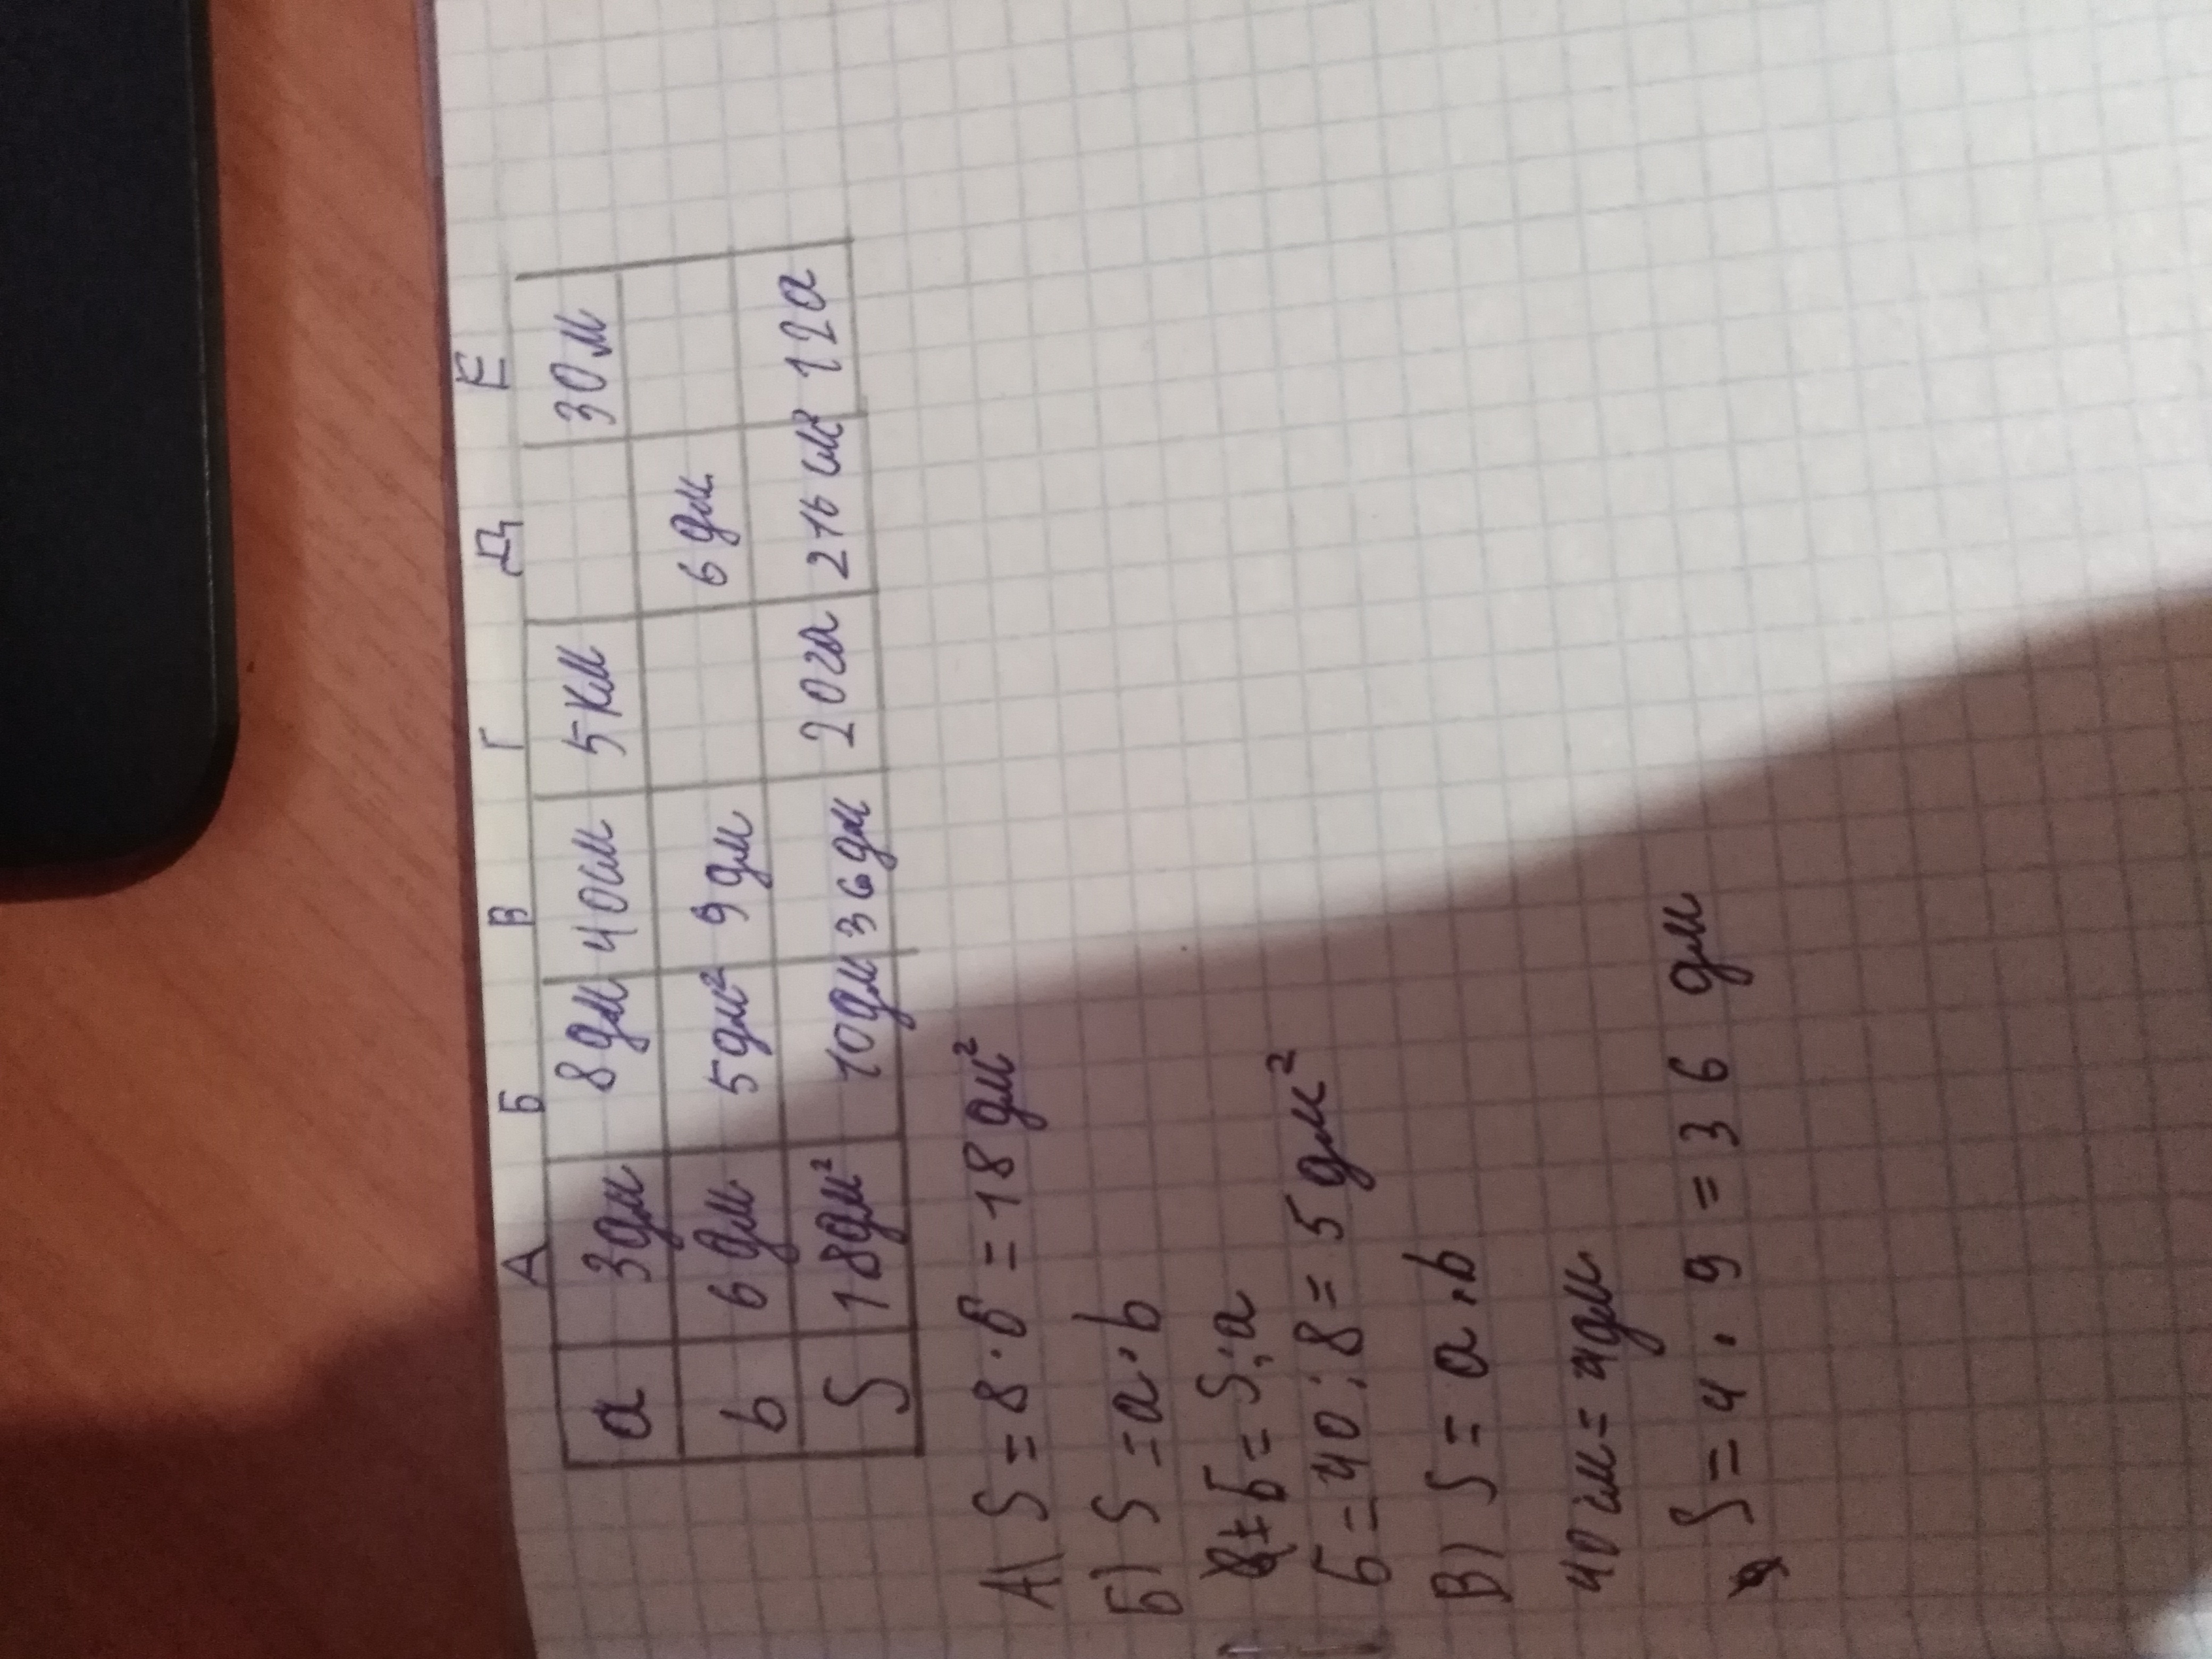 А Б В Г Д Е
a 3дм 8дм 40см 5км 30м
b 6дм 5дм² 9дм 6дм
S 18дм² 10дм 36дм 20га 216см² 12а
А) S = 8 · 6 = 18дм²
Б) S = a · b
b = S : a
б = 40 : 8 = 5дм²
В) S = a · b
40см = 4дм
S = 4 · 9 = 36 дм